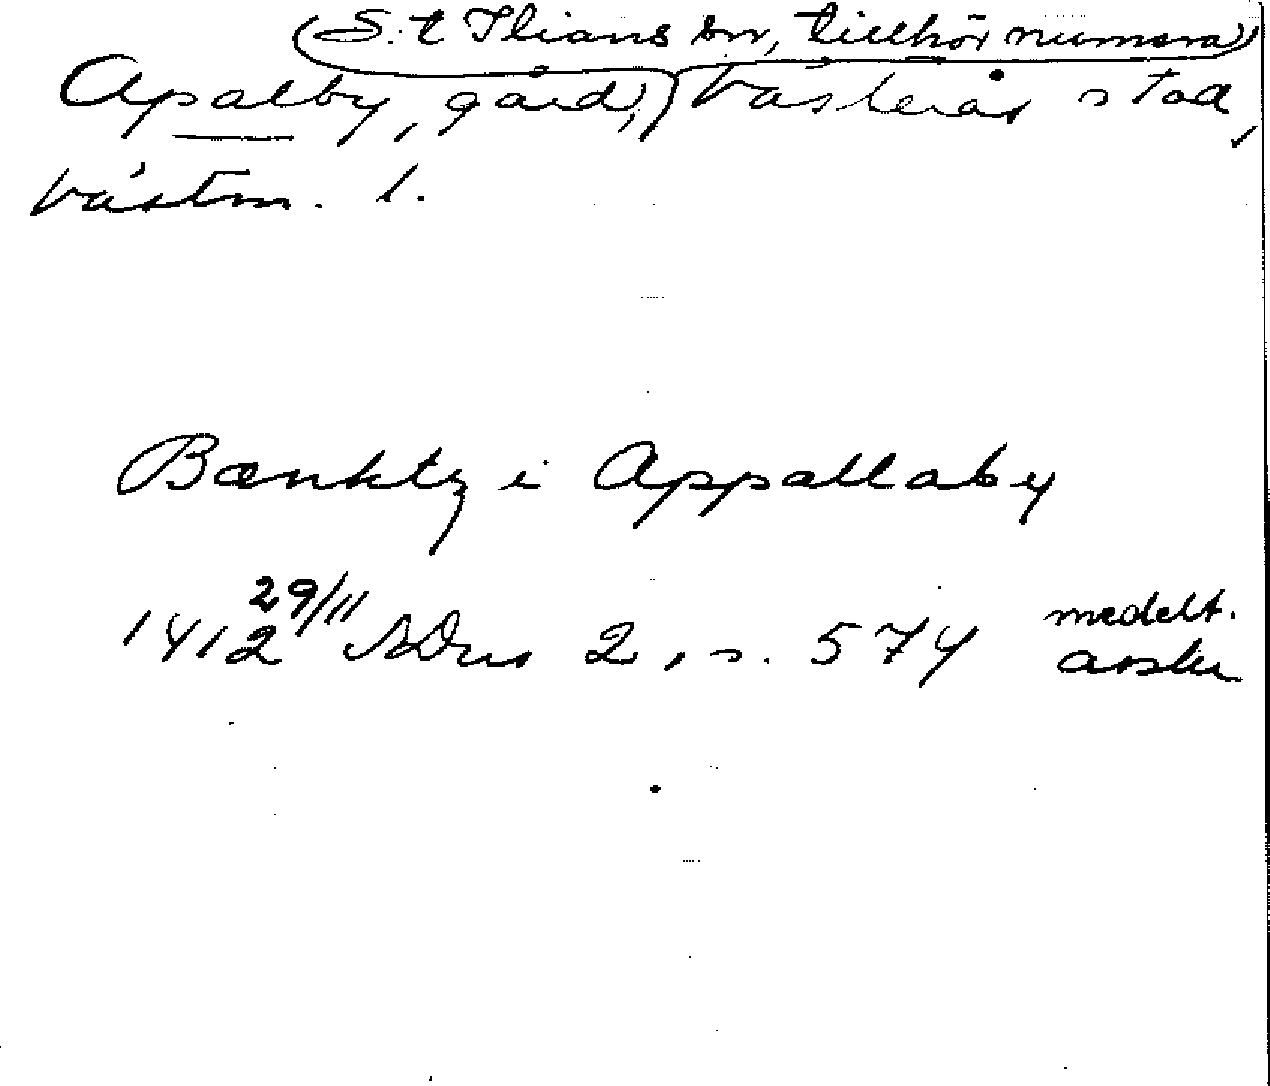 (S:t Ilians sn, tillhör numera)
Apalby, gård, Västerås stad,
Västm. l.
Bænktz i Appallaby
1412 29/11 SDns 2, s. 574 medelt. avskr